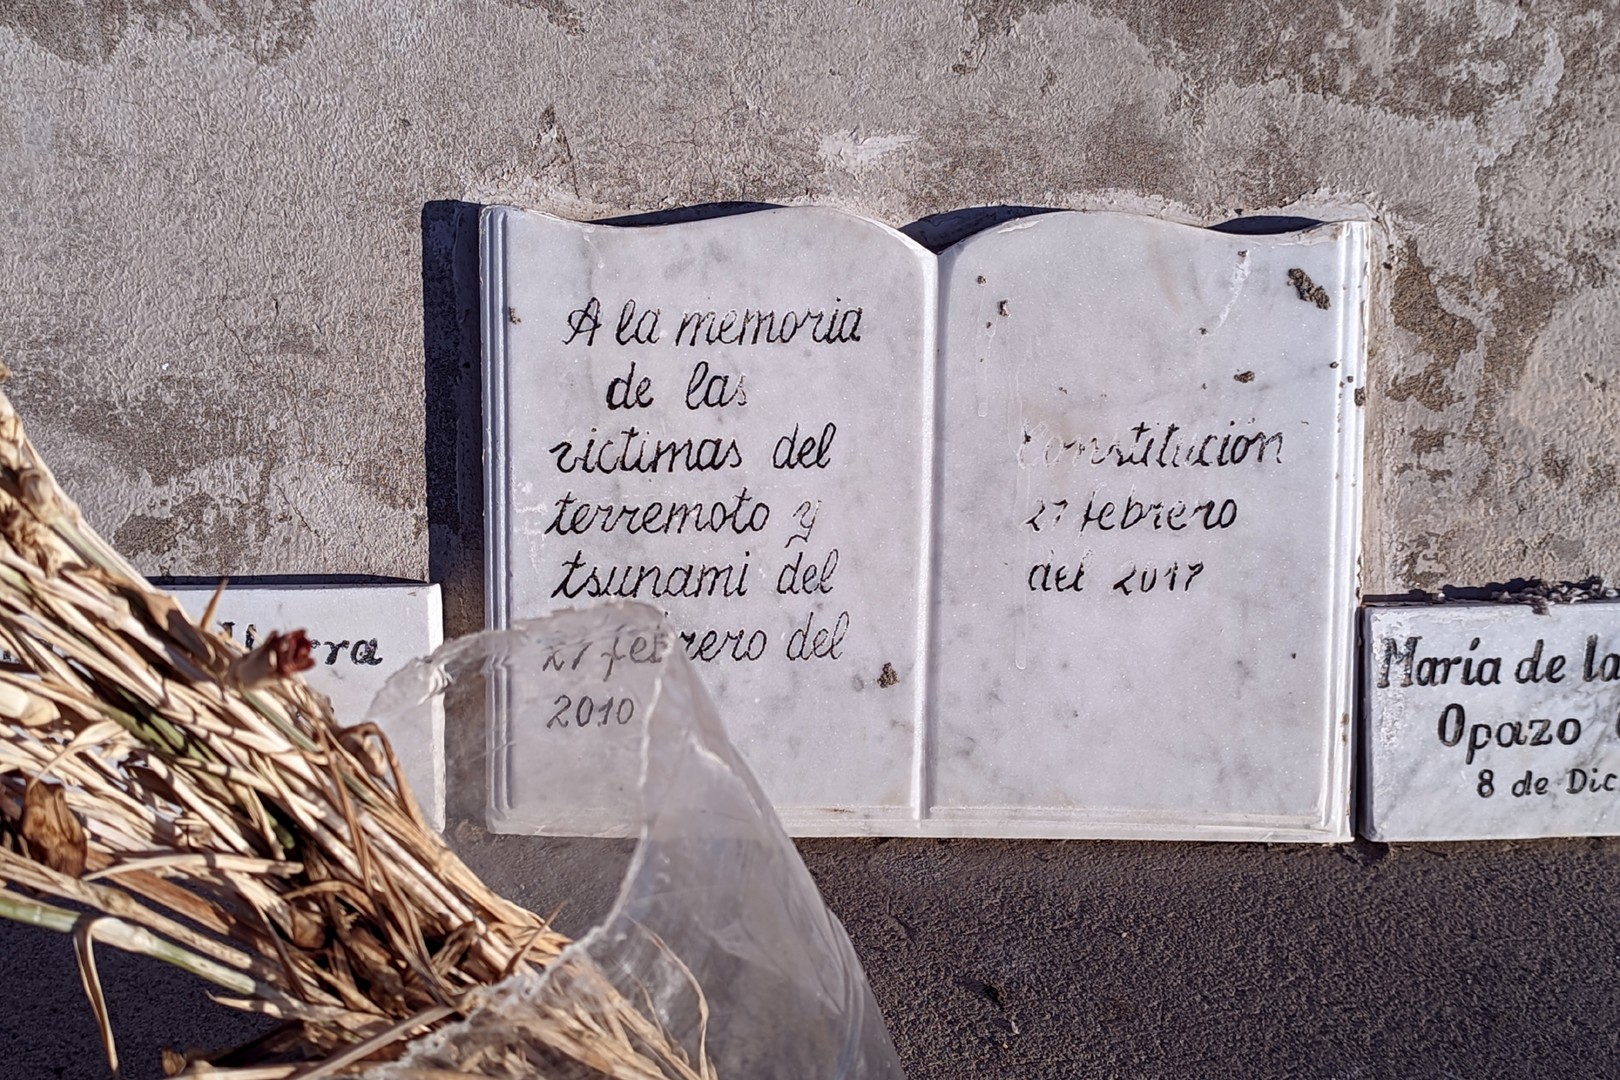 A la memoria
de las
victimas del
terremoto y
tsunami del
27 febrero del
2010
Constitución
27 febrero
del 2017
María de la
Opazo
8 de Dic